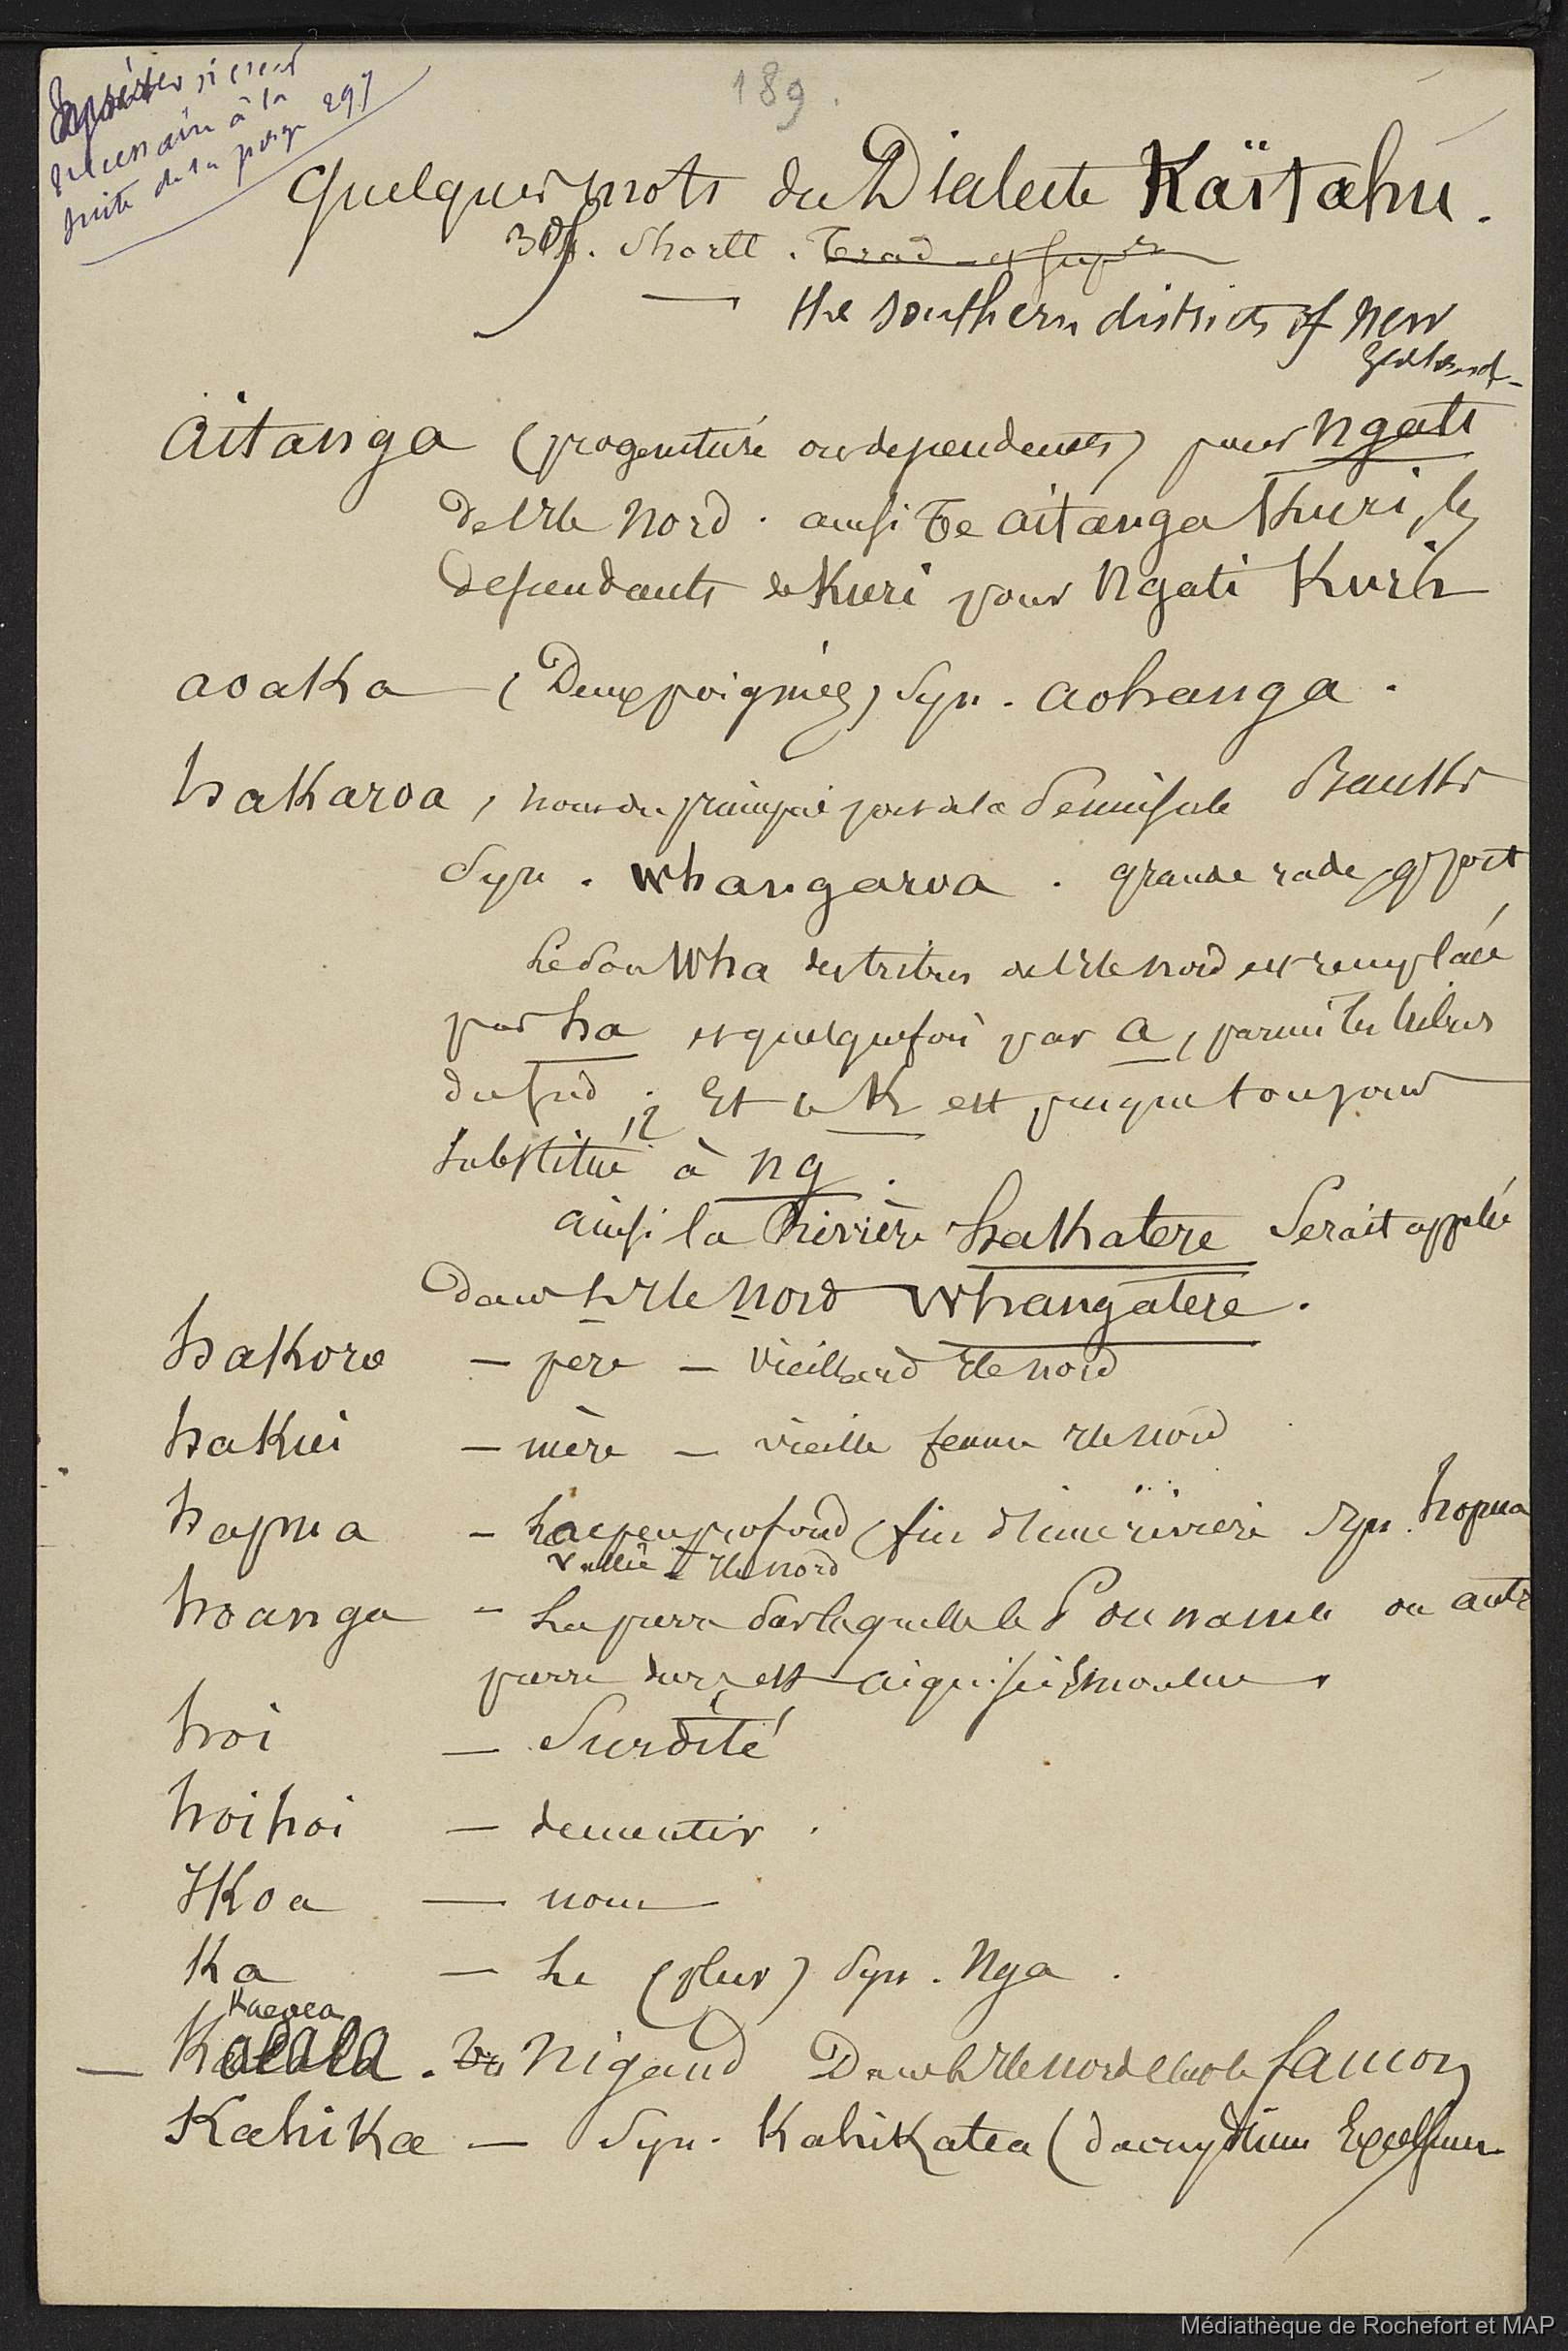 189.
à la
suite de la page 297
Quelques mots du Dialecte Kaïtahu.
305. Shortt. Trad - et sup
The southern districts of New
Zealand -
aitanga (progeniture ou dependents) pour ngati
de l'Ile Nord. ainsi Te aitanga Kuri, les
dependants de Kuri pour Ngati Kuri
aoaka - (Deux poignées) Syn. aohanga.
hakaroa, nom du principal port de la Peninsule Banks
Syn. Whangaroa. grande rade, gd port
Le son Wha des tribus de l'Ile nord est remplacé
par ha et quelquefois par a, parmi les tribus
du Sud. Et le K est presque toujours
substitué à ng.
ainsi la Rivière hakatere Serait appelée
dans l'Ile Nord Whangatere.
hakoro - père - vieillard Ile nord
hakui - mère - vieille femme Ile nord
hapua - lac peu profond (fin d'une rivière Syn. hopua
vallée Ile nord
hoanga - La pierre sur laquelle le Pounamu ou autre
pierre dure est aiguisée, émoulue
hoi - Surdité
hoihoi - dementir.
Ikoa - nom
Ka - Le (plur) Syn. Nga.
Kaeaea
- . Nigaud Dans l'Ile nord c'est le faucon
Kahika - Syn. Kahikatea (dacrydium Excelsum
Médiathèque de Rochefort et MAP